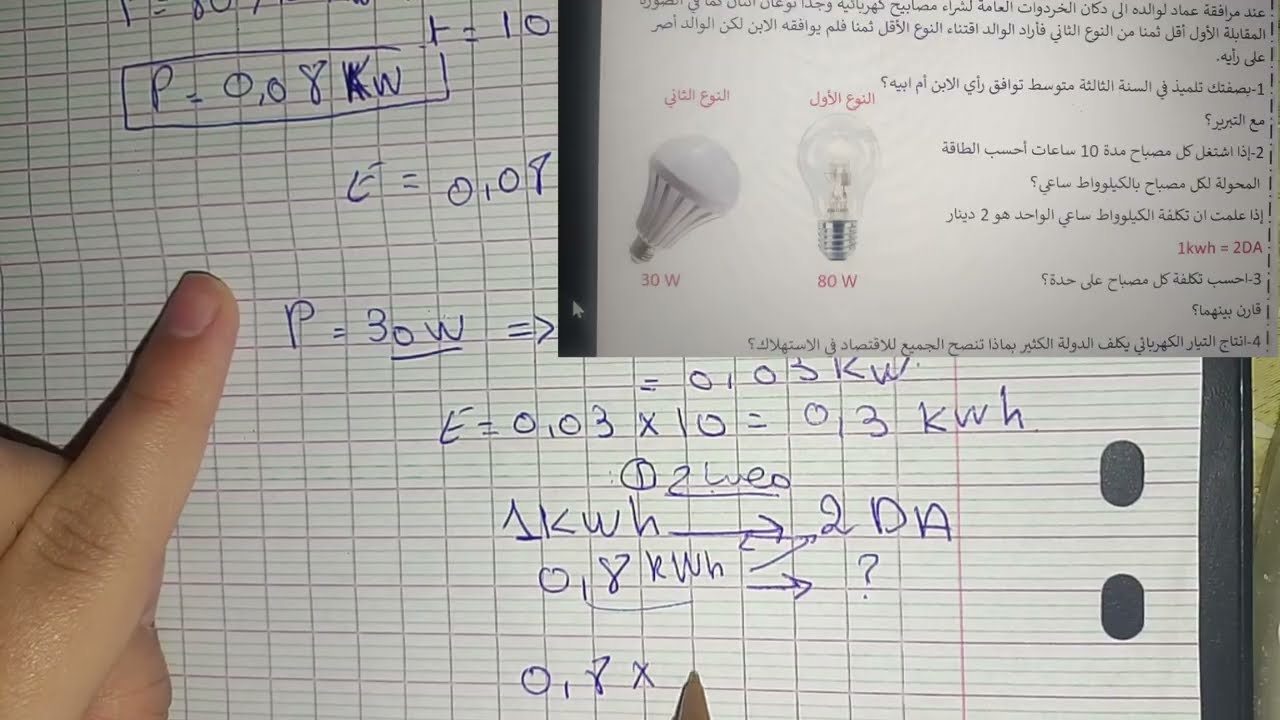 عند مرافقة عماد لوالده الى دكان الخردوات العامة لشراء مصابيح كهربائية وجدا نوعان اثنان كما في الصورة
المقابلة الأول أقل ثمنا من النوع الثاني فأراد الوالد اقتناء النوع الأقل ثمنا فلم يوافقه الابن لكن الوالد أصر
على رأيه.
1-بصفتك تلميذ في السنة الثالثة متوسط توافق رأي الابن أم ابيه؟
مع التبرير؟
النوع الأول
النوع الثاني
2-إذا اشتغل كل مصباح مدة 10 ساعات أحسب الطاقة
المحولة لكل مصباح بالكيلوواط ساعي؟
إذا علمت ان تكلفة الكيلوواط ساعي الواحد هو 2 دينار
1kwh = 2DA
80 W
30 W
3-احسب تكلفة كل مصباح على حدة؟
قارن بينهما؟
4-انتاج التيار الكهربائي يكلف الدولة الكثير بماذا تنصح الجميع للاقتصاد في الاستهلاك؟
t = 10
P = 0,08 KW
E = 0,08
P = 30 W =>
= 0,03 KW
E = 0,03 x 10 = 0,3 kwh
1 Kwh → 2 DA
0,8 kwh → ?
0,8 x